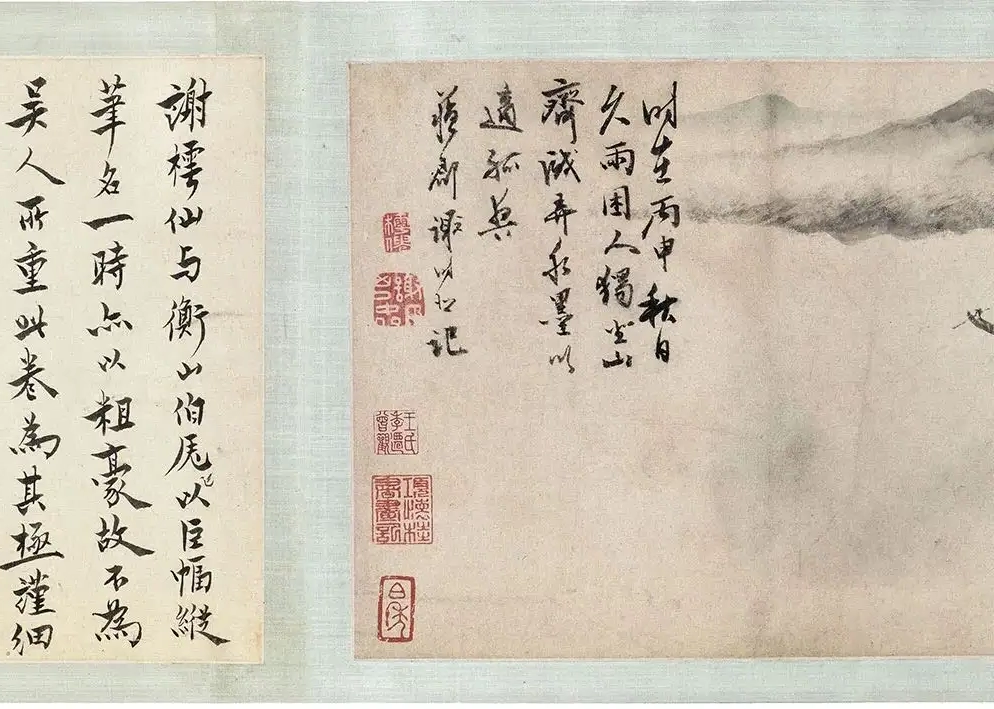 時在丙申秋日
久雨困人獨坐山
齋戲弄水墨以
適孤興
蘇郡謝時臣記
樗仙
王氏季遷曾觀
謝樗仙与衡山伯虎以巨幅縱
筆名一時亦以粗豪故不為
吳人所重此卷為其極謹細